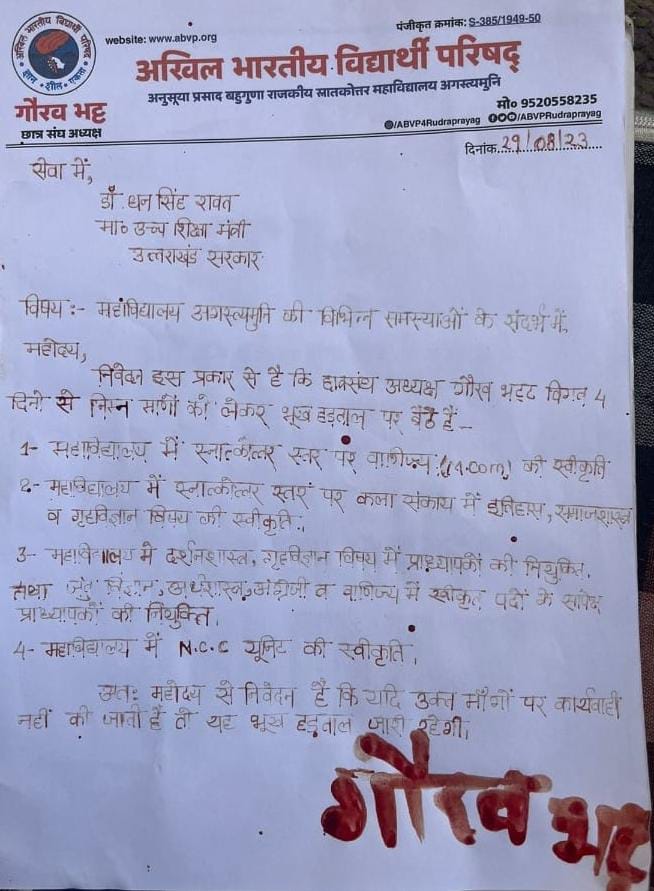 अखिल भारतीय विद्यार्थी परिषद
ज्ञान शील एकता
website: www.abvp.org
पंजीकृत क्रमांक: S-385/1949-50
अखिल भारतीय विद्यार्थी परिषद्
अनुसूया प्रसाद बहुगुणा राजकीय स्नातकोत्तर महाविद्यालय अगस्त्यमुनि
गौरव भट्ट
छात्र संघ अध्यक्ष
मो० 9520558235
@/ABVP4Rudraprayag /ABVPRudraprayag
दिनांक 29/08/23
सेवा में,
डॉ धन सिंह रावत
मा० उच्च शिक्षा मंत्री
उत्तराखंड सरकार
विषय :- महाविद्यालय अगस्त्यमुनि की विभिन्न समस्याओं के संदर्भ में,
महोदय,
निवेदन इस प्रकार से है कि छात्रसंघ अध्यक्ष गौरव भट्ट विगत 4
दिनों से निम्न मांगों को लेकर भूख हड़ताल पर बैठे हैं -
1- महाविद्यालय में स्नातकोत्तर स्तर पर वाणिज्य (M.com) की स्वीकृति
2- महाविद्यालय में स्नातकोत्तर स्तर पर कला संकाय में इतिहास, समाजशास्त्र
व गृहविज्ञान विषय की स्वीकृति.
3- महाविद्यालय में दर्शनशास्त्र, गृहविज्ञान विषय में प्राध्यापकों की नियुक्ति.
तथा जंतु विज्ञान, अर्थशास्त्र, अंग्रेजी व वाणिज्य में स्वीकृत पदों के सापेक्ष
प्राध्यापकों की नियुक्ति.
4- महाविद्यालय में N.C.C यूनिट की स्वीकृति.
अतः महोदय से निवेदन है कि यदि उक्त माँगों पर कार्यवाही
नहीं की जाती है तो यह भूख हड़ताल जारी रहेगी.
गौरव भट्ट